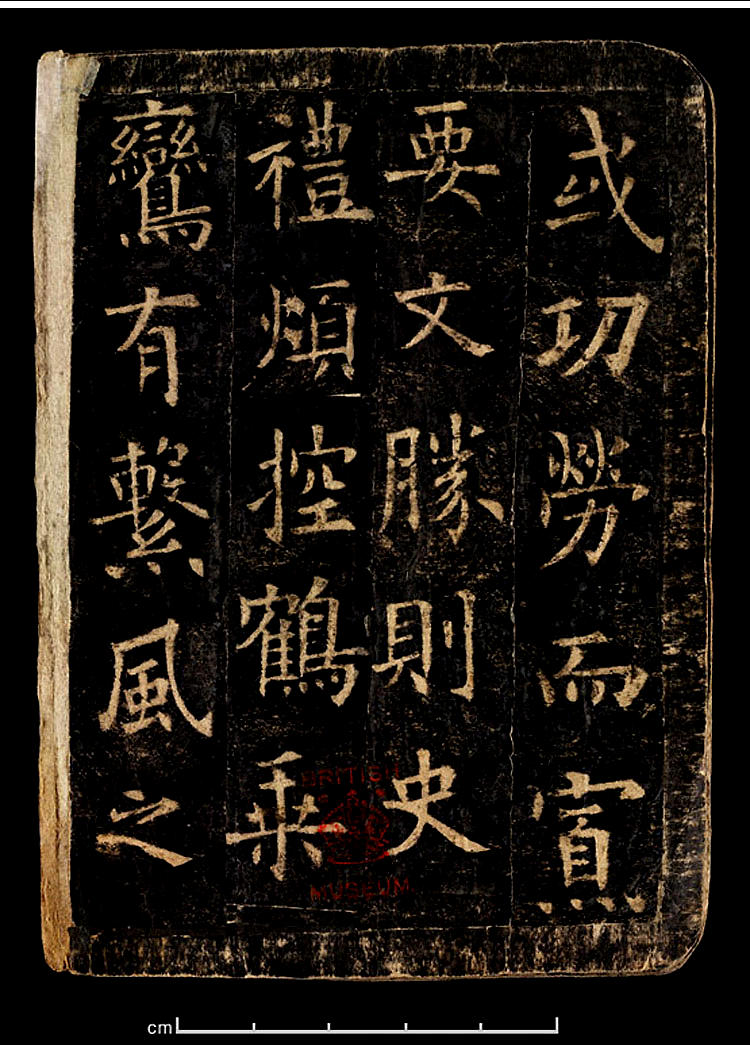 或功勞而寡
要文勝則史
禮煩控鶴乘
鸞有繫風之
BRITISH
MUSEUM
cm